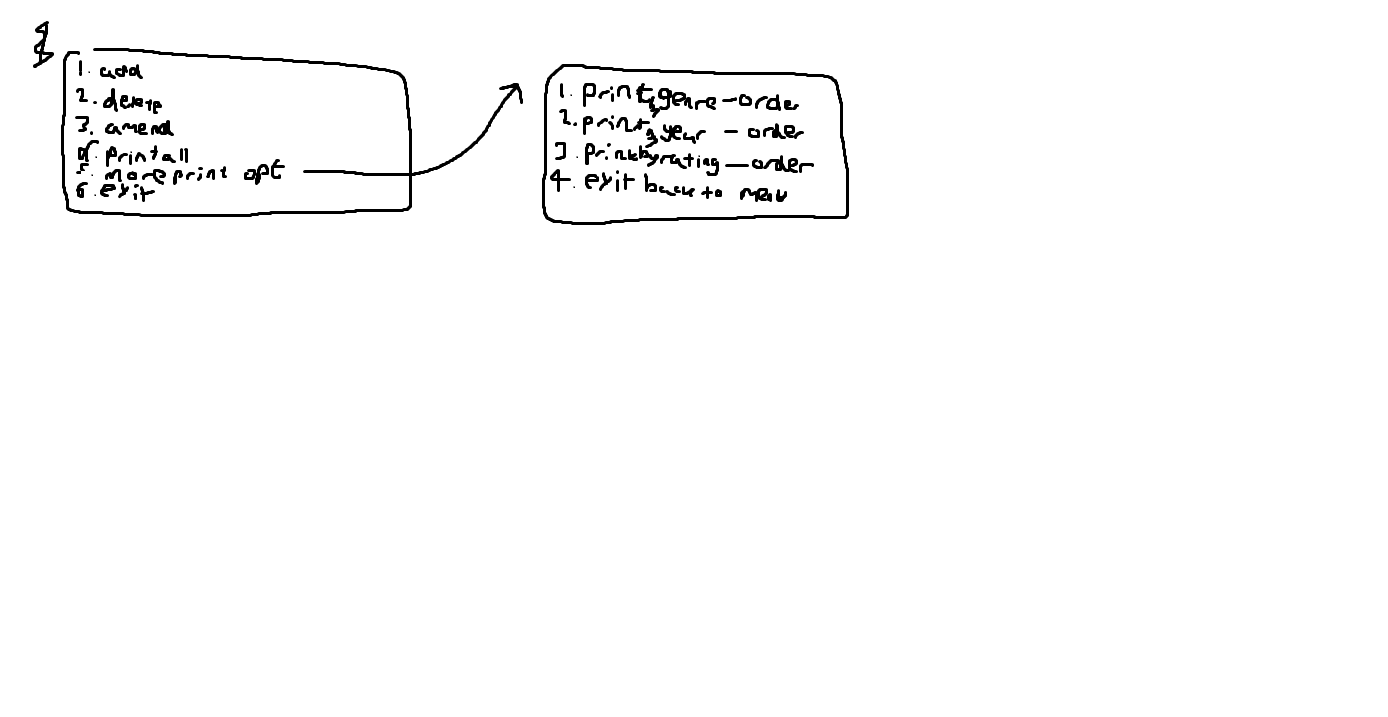 1. add
2. delete
3. amend
4. print all
5. more print opt
6. exit
1. print by genre - order
2. print by year - order
3. print by rating - order
4. exit back to menu